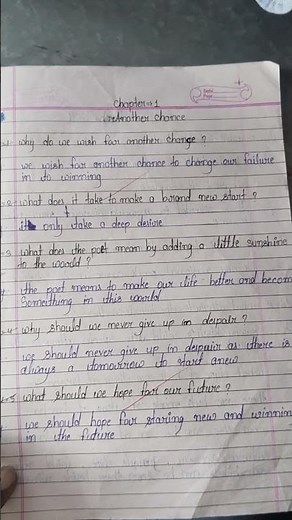 Date
Page
Chapter-1
Another chance
why do we wish for another change ?
we wish for another chance to change our failure
in to winning
what does it take to make a brand new start ?
it only take a deep desire
what does the poet mean by adding a little sunshine
to the world ?
the poet means to make our life better and becom
Something in this world
why should we never give up in depair ?
we should never give up in depair as there is
always a tomorrow to start anew
what should we hope for our future ?
we should hope for staring new and winnin
in the future